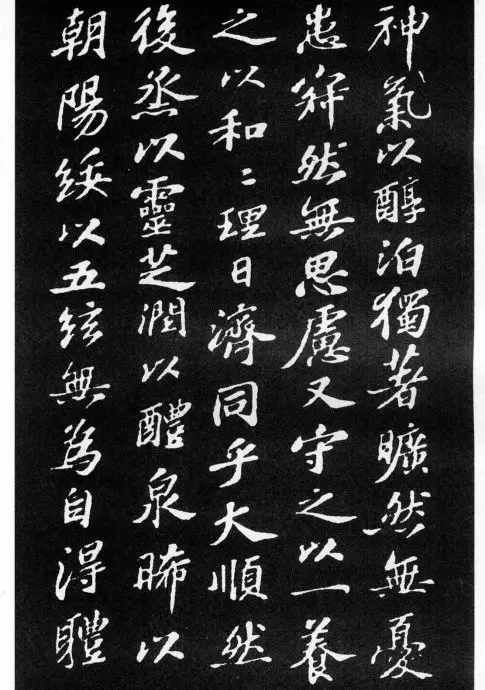 神氣以醇泊獨著曠然無憂
患寂然無思慮又守之以一養
之以和〻理日濟同乎大順然
後蒸以靈芝潤以醴泉晞以
朝陽綏以五絃無為自得體